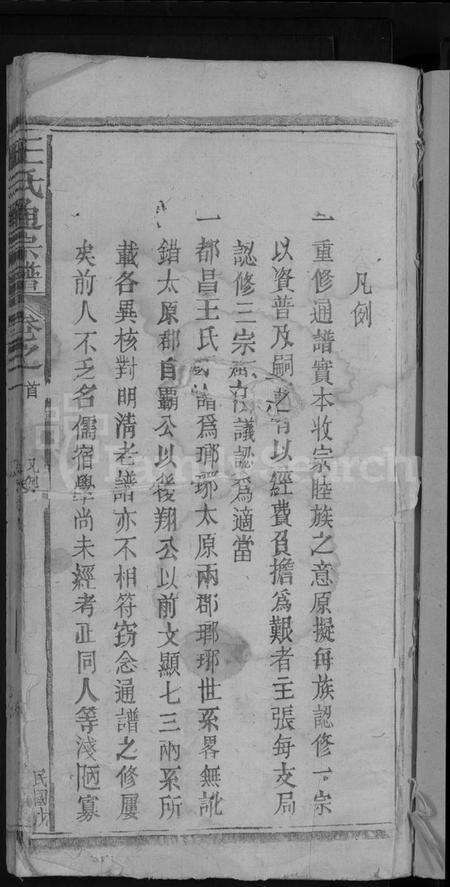 凡例
一重修通譜實本收宗睦族之意原擬每族認修一宗
以資普及嗣以經費負擔爲艱者主張每支局
認修三宗議認爲適當
一都昌王氏譜爲瑯琊太原兩郡瑯琊世系畧無訛
錯太原郡自霸公以後翔公以前文顯七三兩系所
載各異核對明清老譜亦不相符窃念通譜之修屢
矣前人不乏名儒宿學尚未經考正同人等淺陋寡
王氏通宗譜 卷之 首
凡例
民國
FamilySearch